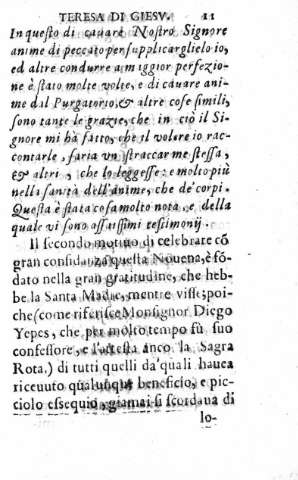 TERESA DI GIESV. 11
In questo di cauare Nostro Signore
anime di peccato per supplicarglielo io,
ed altre condurre a miggior perfezio-
ne è stato molte volte, e di cauare ani-
me dal Purgatorio, & altre cose simili,
sono tante le grazie, che in ciò il Si-
gnore mi hà fatto, che il volere io rac-
contarle, faria vn straccar me stessa,
& altri, che lo leggesse: e molto più
nella sanità dell'anime, che de' corpi.
Questa è stata cosa molto nota, e della
quale vi sono assaissimi testimonij.
Il secondo motiuo di celebrare cõ
gran confidanza questa Nouena, è fõ-
dato nella gran gratitudine, che heb-
be la Santa Madre, mentre visse; poi-
che (come riferisce Monsignor Diego
Yepes, che per molto tempo fù suo
confessore, e l'attesta anco la Sagra
Rota.) di tutti quelli da' quali hauea
riceuuto qualunque beneficio, e pic-
ciolo essequio, giamai si scordaua di
lo-